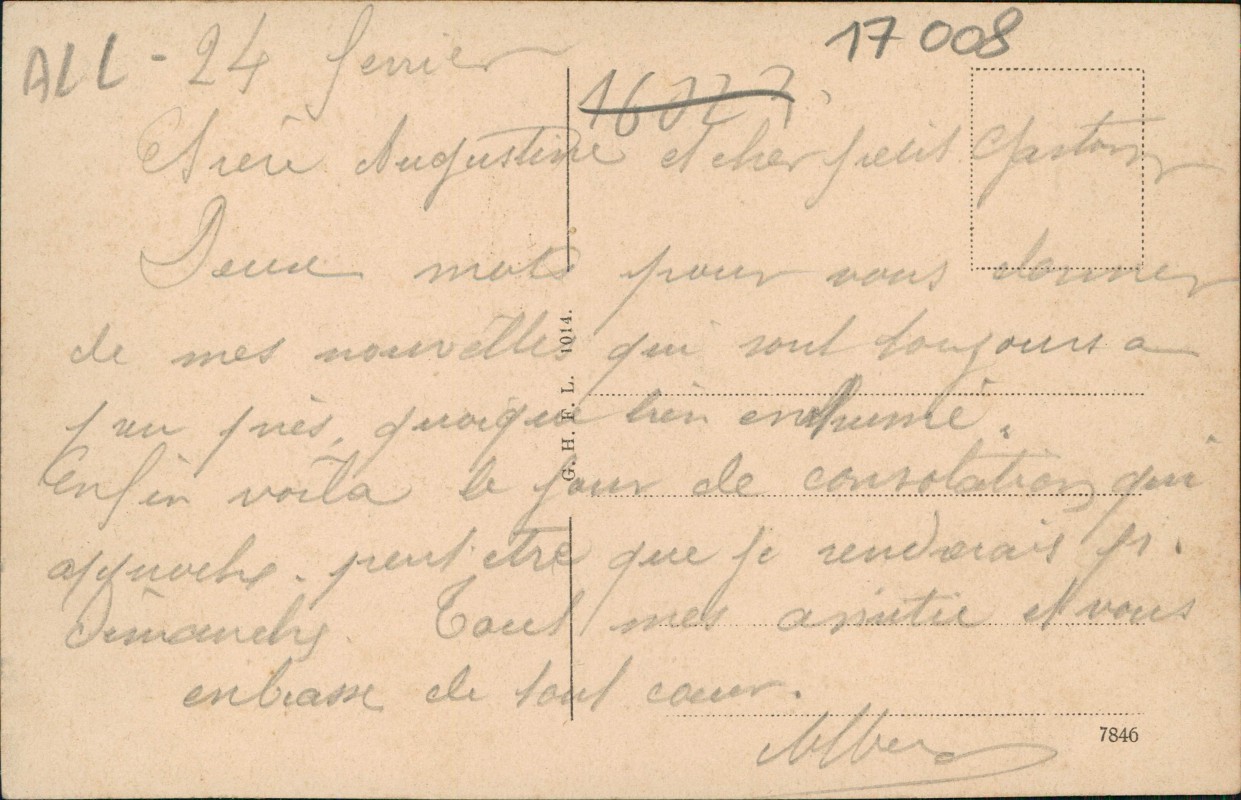 ALL - 24 fevrier
17 008
16027
Chère Augustine et cher petit Gaston
Deux mots pour vous donner
de mes nouvelles qui sont toujours a
peu près, quoique bien enrhumé.
Enfin voila le jour de consolation qui
approche. peut etre que je renderais pr.
Dimanche. Tout mes amitie et vous
enbrasse de tout cœur.
Albert
G. H. F. L. 1014.
7846